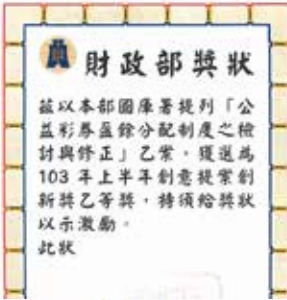 財政部獎狀
茲以本部國庫署提列「公
益彩券盈餘分配制度之檢
討與修正」乙案，獲選為
103 年上半年創意提案創
新獎乙等獎，特頒給獎狀
以示激勵。
此狀